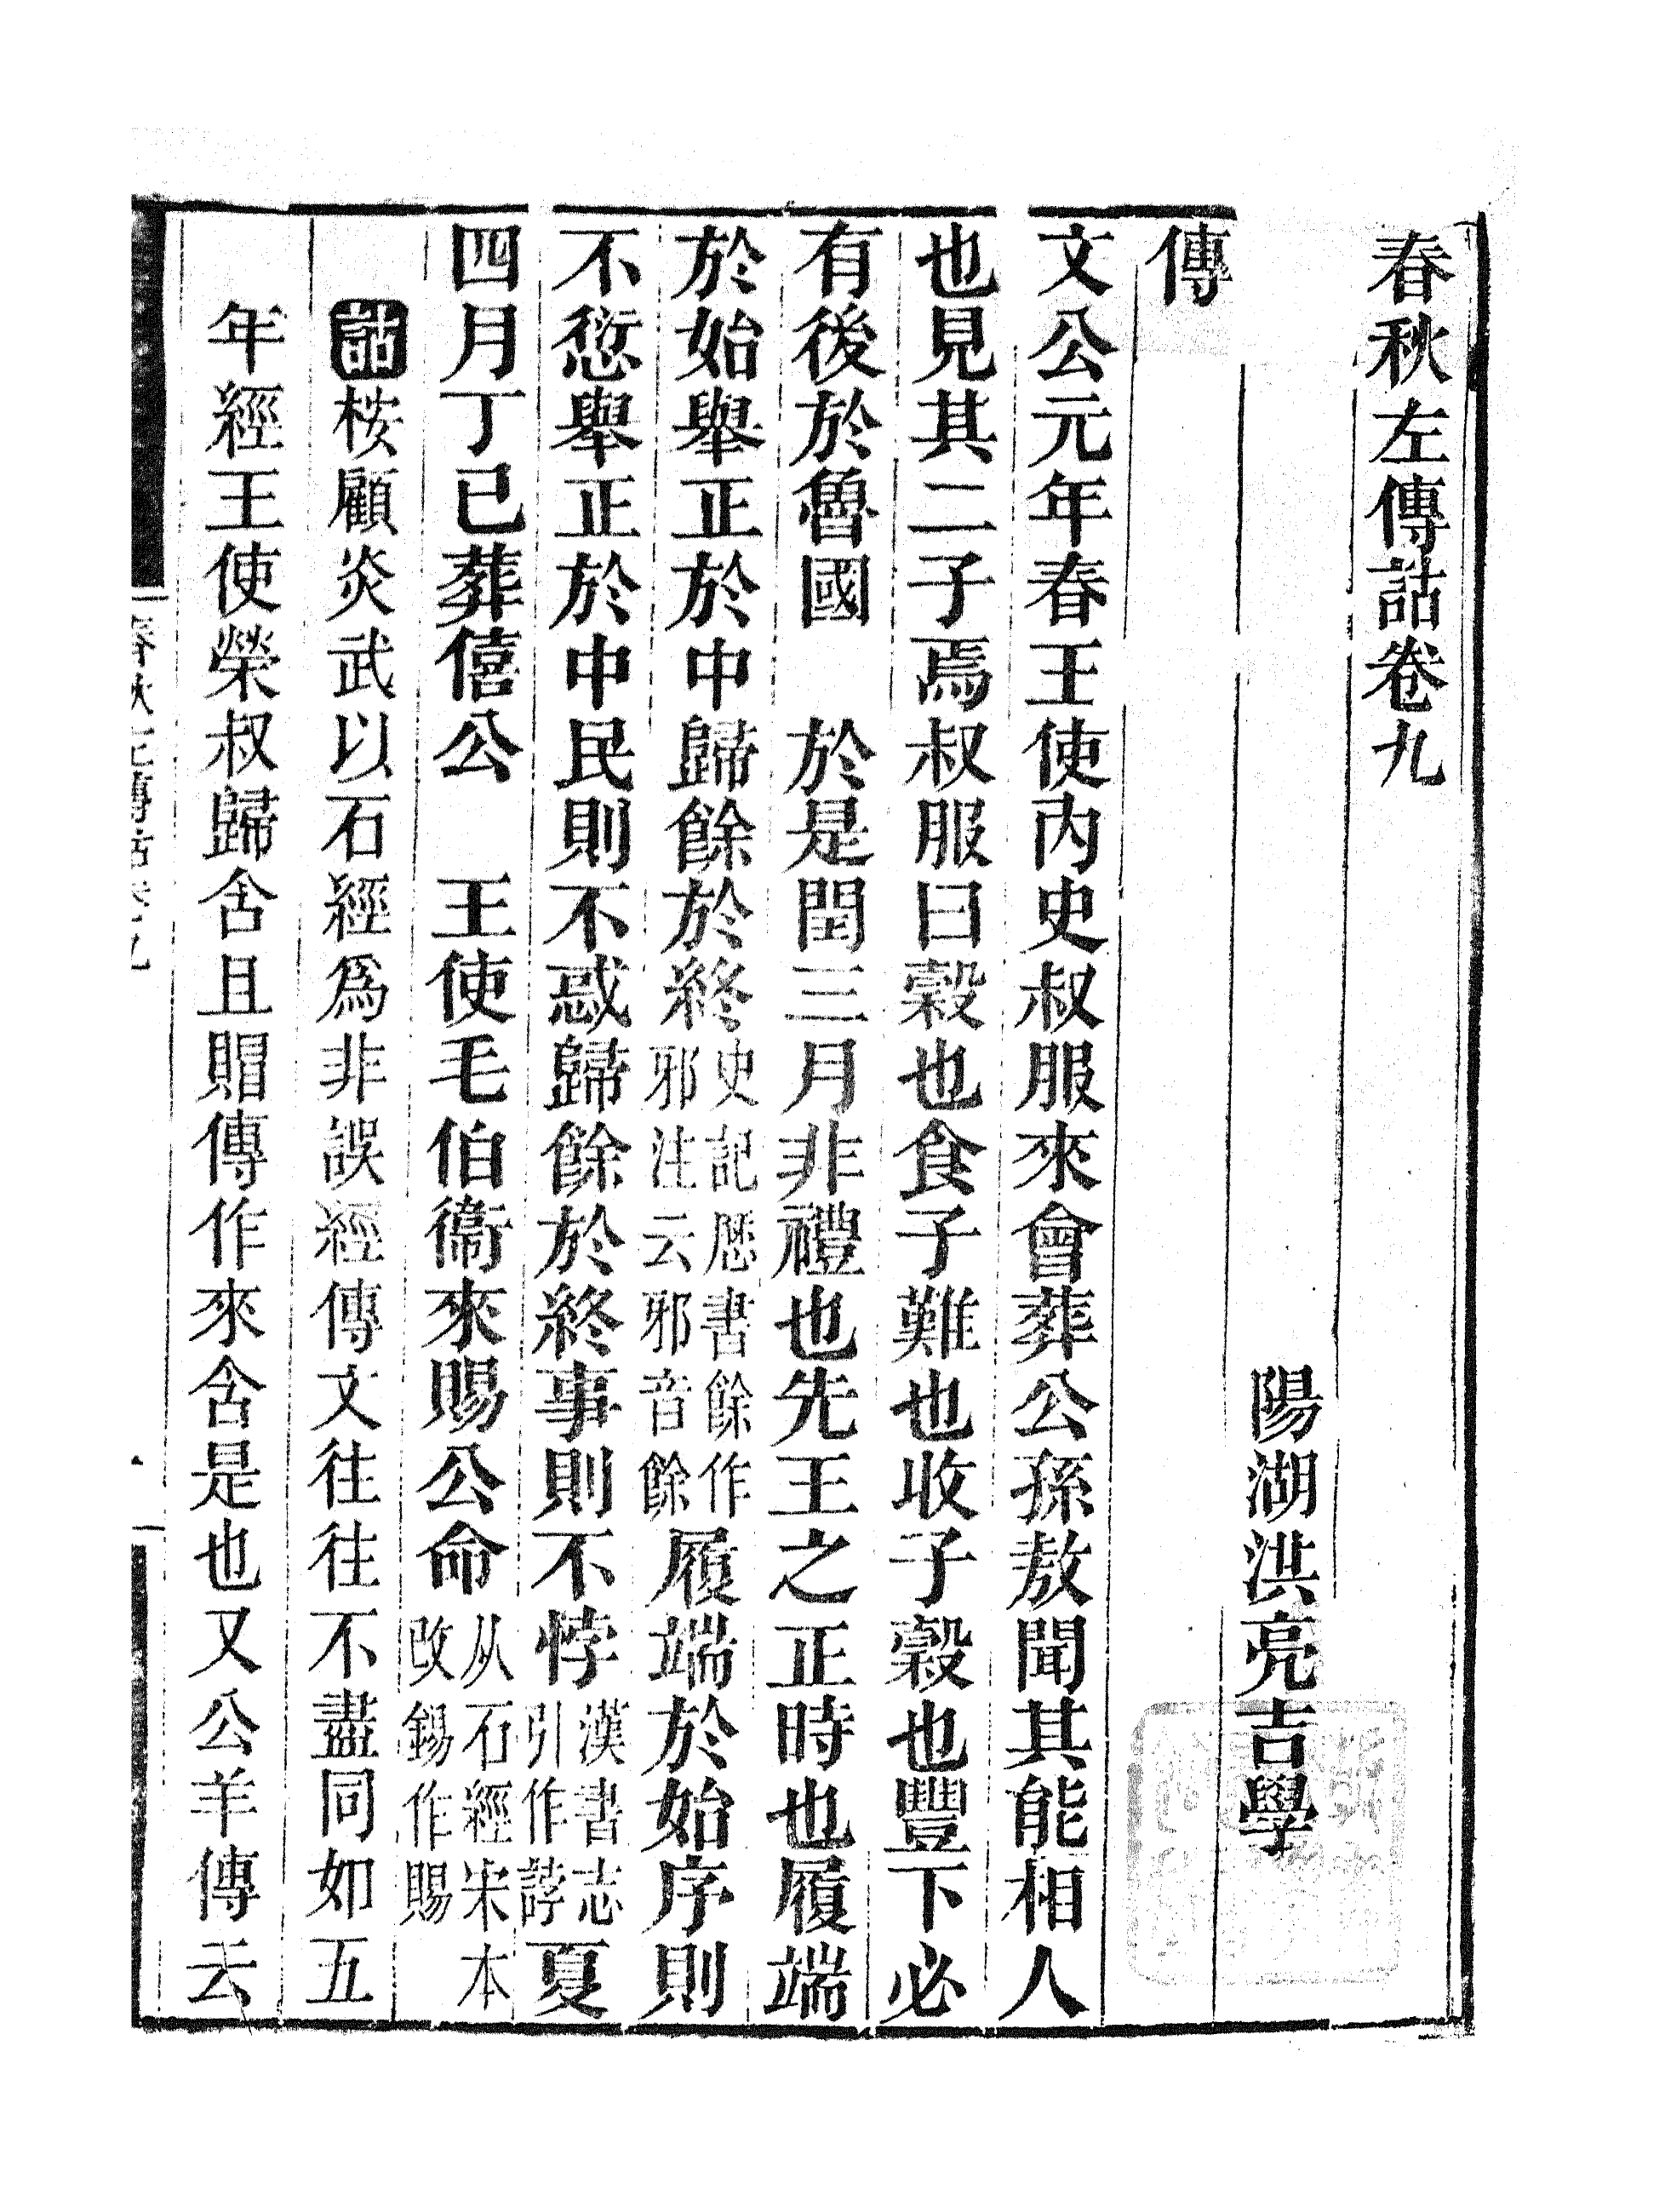 春秋左傳詁卷九
陽湖洪亮吉學
傳
文公元年春王使內史叔服來會葬公孫敖聞其能相人
也見其二子焉叔服曰穀也食子難也收子穀也豐下必
有後於魯國　於是閏三月非禮也先王之正時也履端
於始舉正於中歸餘於終史記厯書餘作邪注云邪音餘履端於始序則
不愆舉正於中民則不惑歸餘於終事則不悖漢書志引作誖夏
四月丁巳葬僖公　王使毛伯衞來賜公命从石經宋本改錫作賜
詁桉顧炎武以石經爲非誤經傳文往往不盡同如五
年經王使榮叔歸含且賵傳作來含是也又公羊傳云